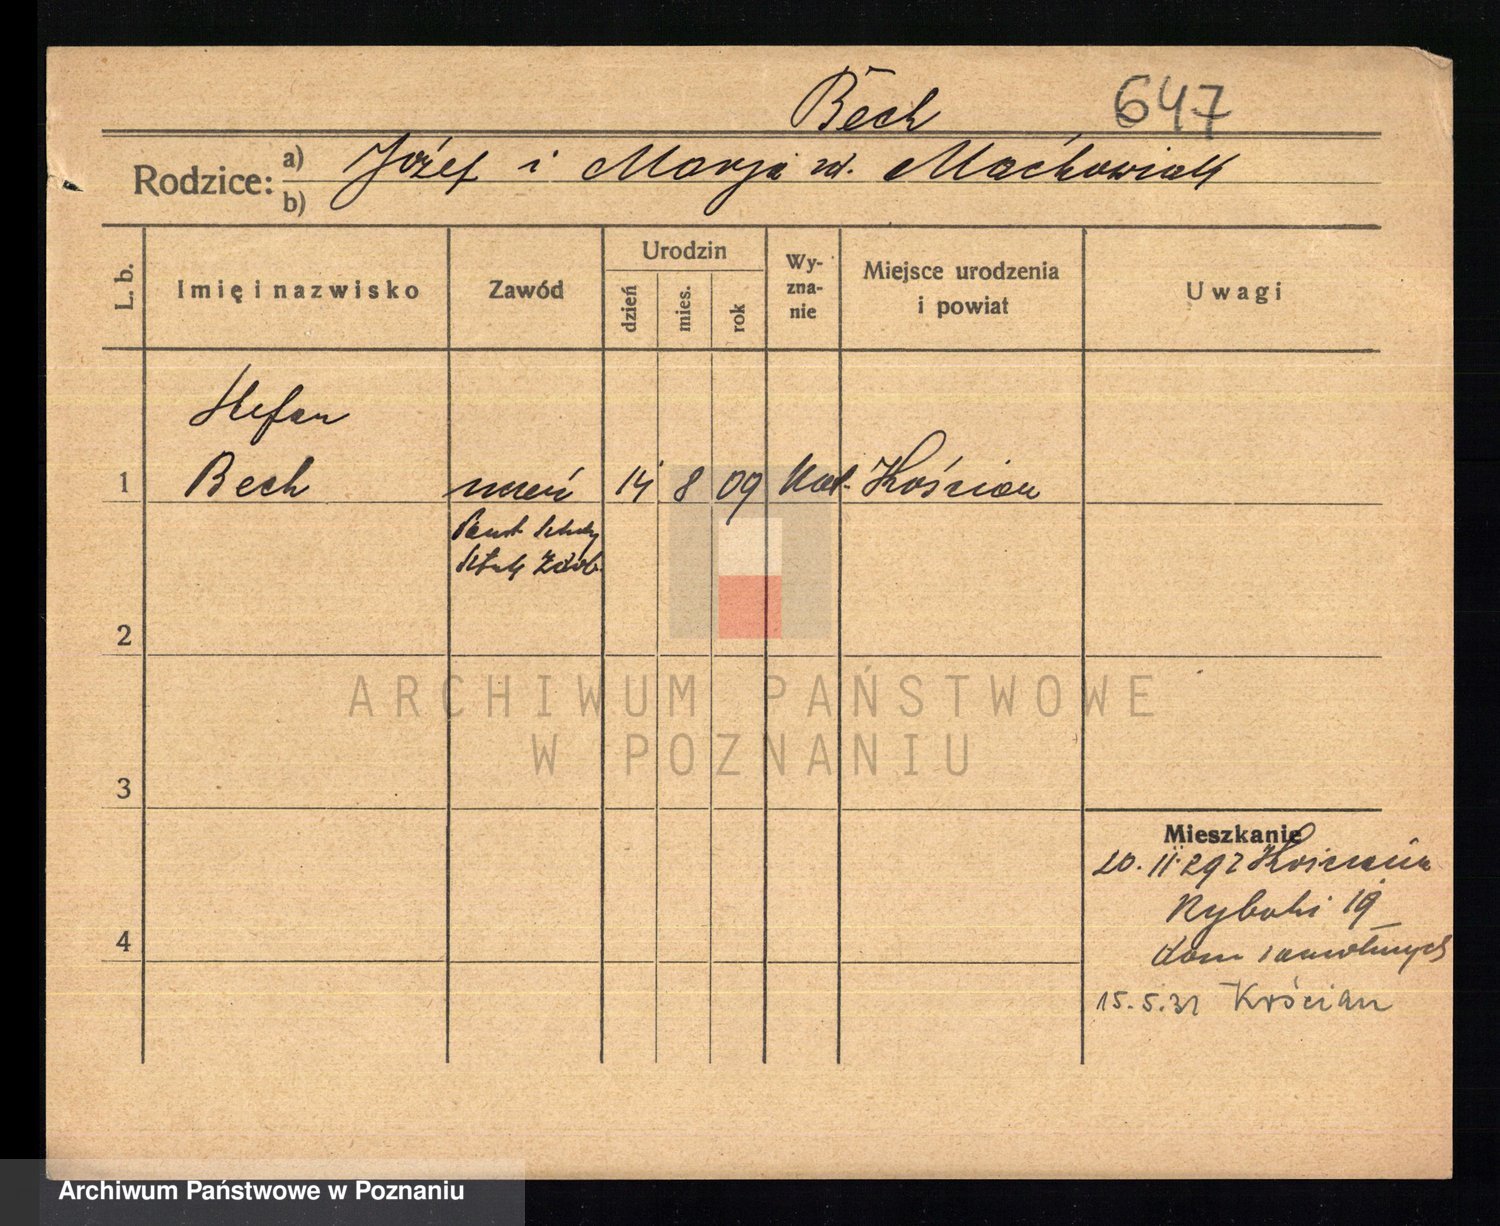 Bech
647
Rodzice: a) Józef i Marja z d. Maćkowiak
b)
L. b.
Imię i nazwisko
Zawód
Urodzin
dzień
mies.
rok
Wy-
zna-
nie
Miejsce urodzenia
i powiat
Uwagi
Stefan
1 Bech uczeń 14 8 09 kat. Kościan
Państ Szkoły
Sztuk Zdob.
2
ARCHIWUM PAŃSTWOWE
W POZNANIU
3
Mieszkanie
20.11.29 z Kościana
Rybaki 19
4
dom samotnych
15.5.31 Kościan
Archiwum Państwowe w Poznaniu